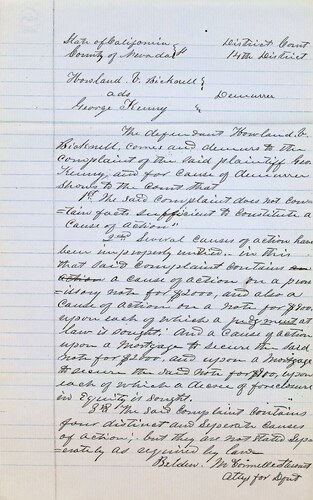 State of California } District Court
County of Nevada } ss 14th District
Howland V. Bicknell }
ads } Demurrer
George Kenny }
The defendant Howland V.
Bicknell, comes and demurs to the
complaint of the said plaintiff Geo
Kenny, and for cause of demurrer
shows to the Court that
1st The said Complaint does not con=
=tain facts sufficient to constitute a
Cause of action"
2nd Several causes of action have
been improperly united— in this
that said Complaint contains an
action a cause of action on a prom
issory note for $2000, and also a
Cause of action on a note for $900
upon each of which a judgment at
law is sought. And a Cause of action
upon a Mortgage to secure the said
note for $2000. and upon a Mortgage
to secure the said note for $900, upon
each of which a decree of foreclosure
in Equity is sought.
3rd The said Complaint contains
four distinct and Seperate Causes
of action; but they are not stated Sepa
=rately as required by law
Belden
Attys for Deft